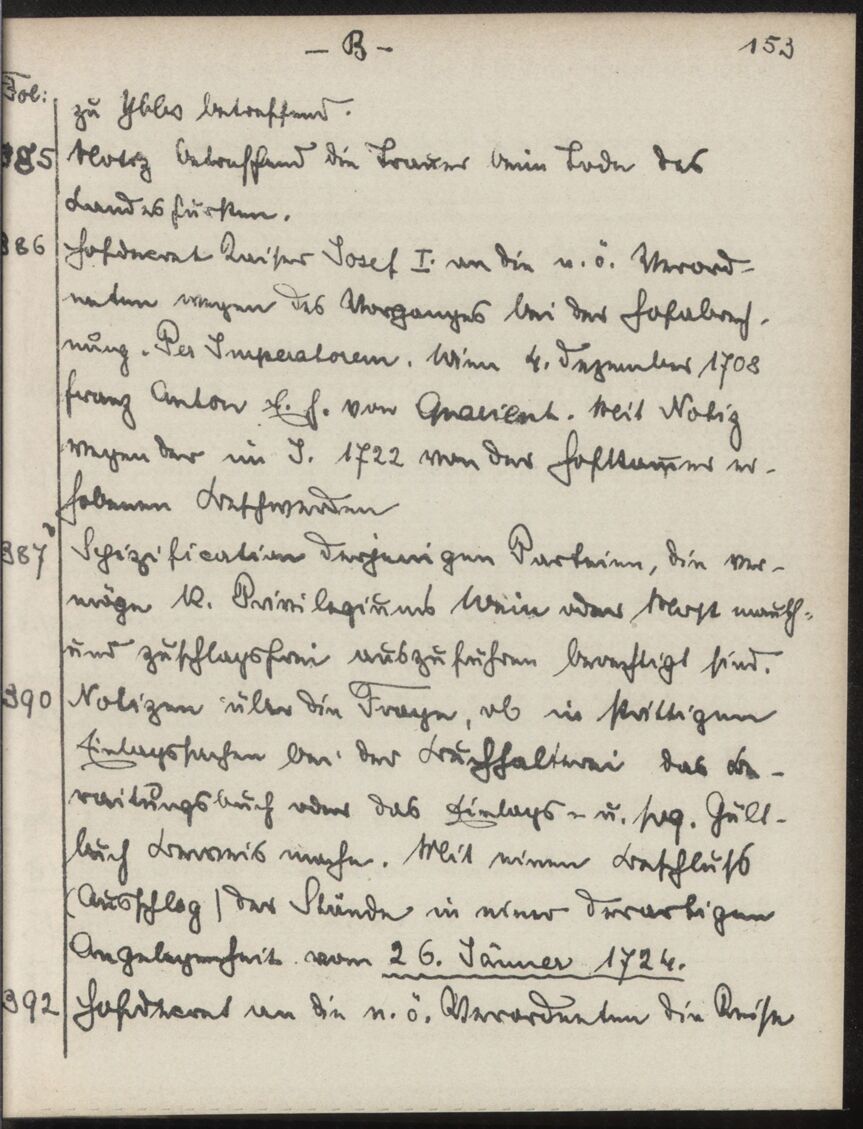 - B -
153
Fol:
zu Ybbs betreffend.
385 Notiz betreffend die Trauer beim Tode des
Landesfürsten.
386 Hofdecret Kaiser Josef I. an die n. ö. Verord-
neten wegen des Vorganges bei der Hofabrech-
nung. Per Imperatorem. Wien 4. Dezember 1708
Franz Anton E. H. von Quarient. Mit Notiz
wegen der im J. 1722 von der Hofkammer er-
hobenen Beschwerden
387 v Spezification derjenigen Parteien, die ver-
möge K. Privilegiums Wein oder Most mauth-
und zuschlagsfrei auszuführen berechtigt sind.
390 Notizen über die Frage, ob in strittigen
Einlagssachen bei der Buchhalterei das Be-
raitungsbuch oder das Einlags- u. sog. Gült-
buch Beweis mache. Mit einen Beschluss
(Ausschlag) der Stände in einer derartigen
Angelegenheit vom 26. Jänner 1724.
392 Hofdecret an die n. ö. Verordneten die Reise